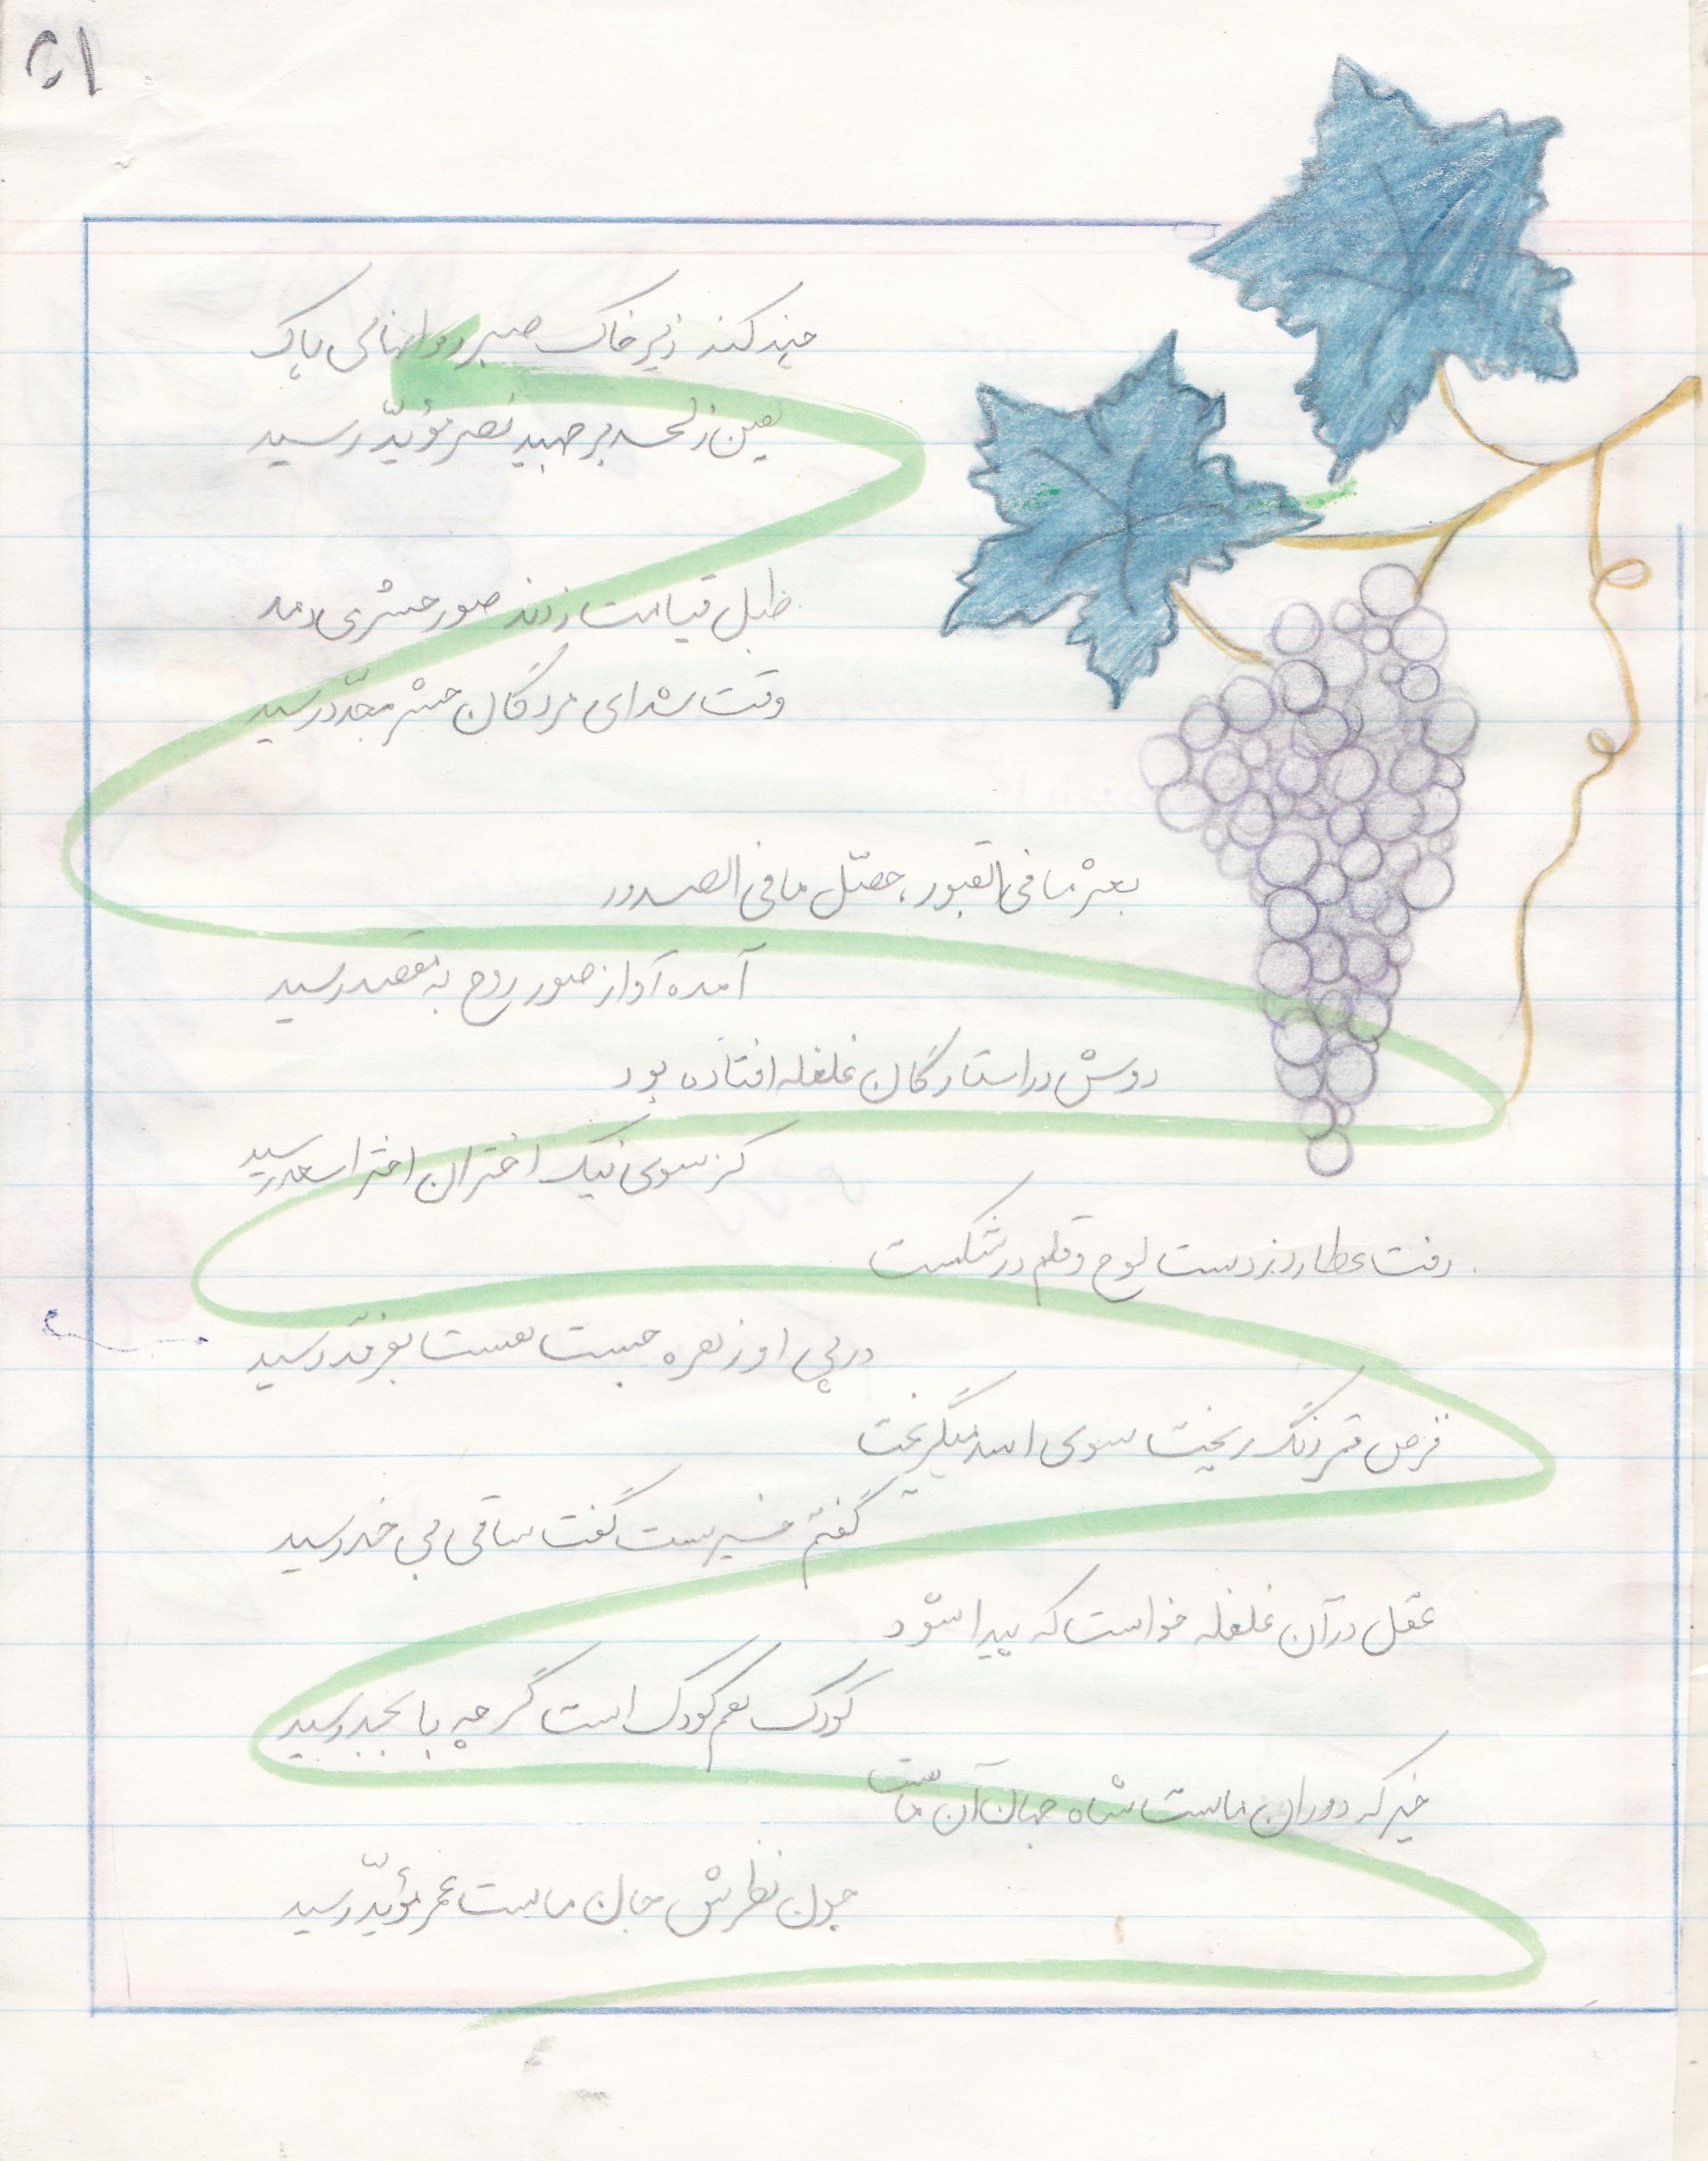 ۵۱
چند کند زیر خاک صبر روانهای پاک
هین ز لحد برجهید نصر مؤیّد رسید
طبل قیامت زدند صور حشر می‌دمد
وقت شد ای مردگان حشر مجدّد رسید
بعثر ما فی القبور، حصّل ما فی الصدور
آمد آواز صور روح به مقصد رسید
دوش در استارگان غلغله افتاده بود
کز سوی نیک اختران اختر اسعد رسید
رفت عطارد ز دست لوح و قلم درشکست
در پی او زهره جست مست بفرقد رسید
قرص قمر رنگ ریخت سوی اسد میگریخت
گفتم خیرست گفت ساقی بی خد رسید
عقل در آن غلغله خواست که پیدا شود
کودک هم کودک است گر چه بابجد رسید
خیز که دوران ماست شاه جهان آن ماست
چون نظرش جان ماست عمر مؤبّد رسید